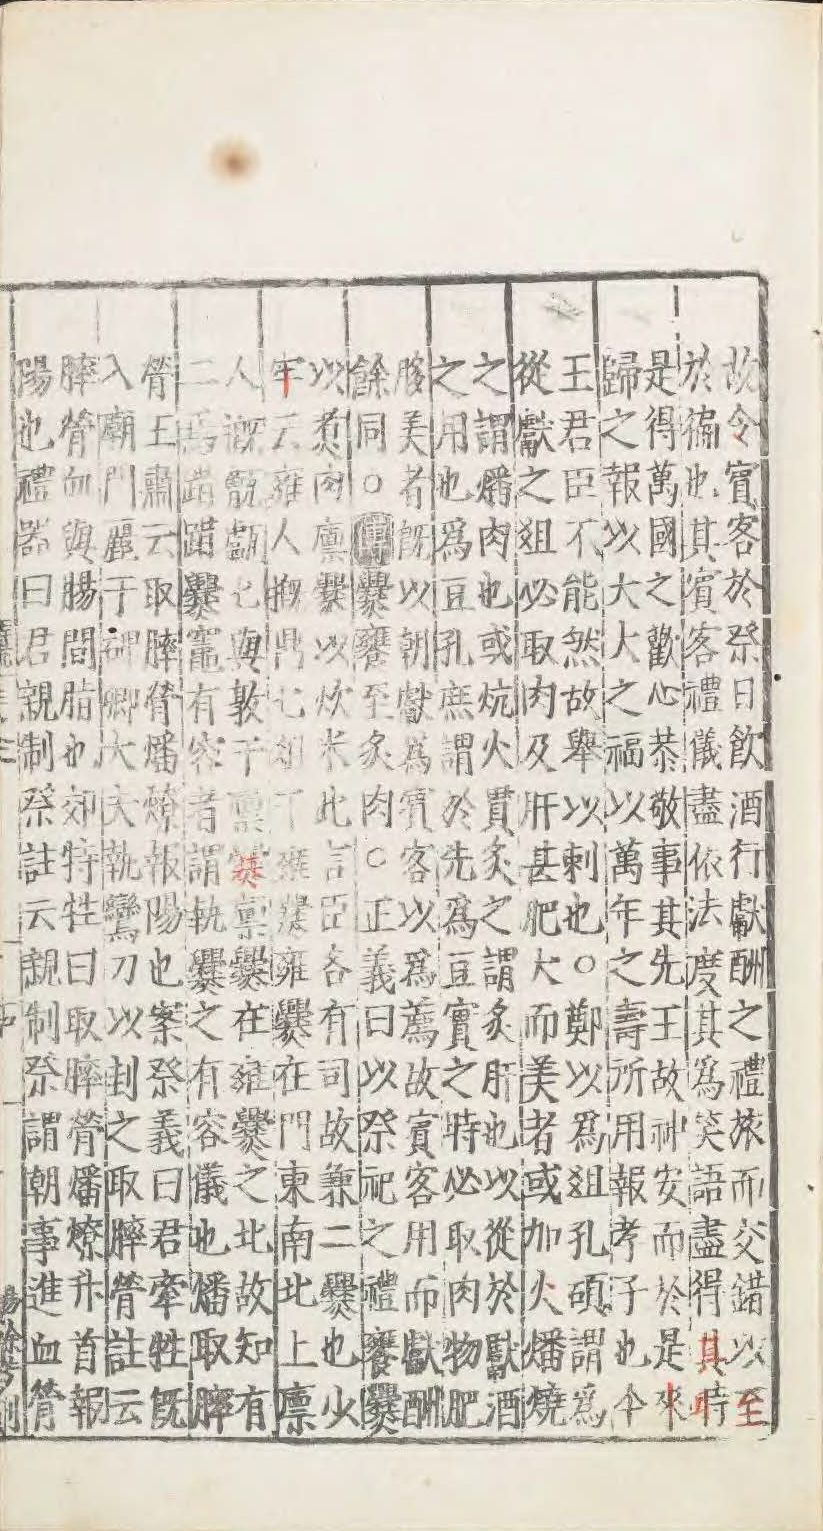 故令賓客於祭日飲酒行獻酬之禮旅而交錯以至
於徧也其賓客禮儀盡依法度其爲笑語盡得其時
是得萬國之歡心恭敬事其先王故神安而於是來
歸之報以大大之福以萬年之壽所用報孝子也今
王君臣不能然故舉以刺也○鄭以爲俎孔碩謂爲
從獻之俎必取肉及肝甚肥大而美者或加火燔燒
之謂燔肉也或炕火貫炙之謂炙肝也以從於獻酒
之用也爲豆孔庶謂於先爲豆實之時必取肉物肥
䏽美者旣以朝獻爲賓客以爲薦故賓客用而獻酬
餘同○傳爨饔至炙肉○正義曰以祭祀之禮饔爨
以煮肉廩爨以炊米此言臣各有司故兼二爨也少
牢云雍人摡鼎匕俎于雍爨雍爨在門東南北上廩
人溉甑甗匕與敦于廩爨廩爨在雍爨之北故知有
二焉踖踖爨竈有容者謂執爨之有容儀也燔取膟
膋王肅云取膟膋燔燎報陽也案祭義曰君牽牲旣
入廟門麗于碑卿大夫執鸞刀以刲之取膟膋註云
膟膋血與腸間脂也郊特牲曰取膟膋燔燎升首報
陽也禮器曰君親制祭註云親制祭謂朝事進血膋